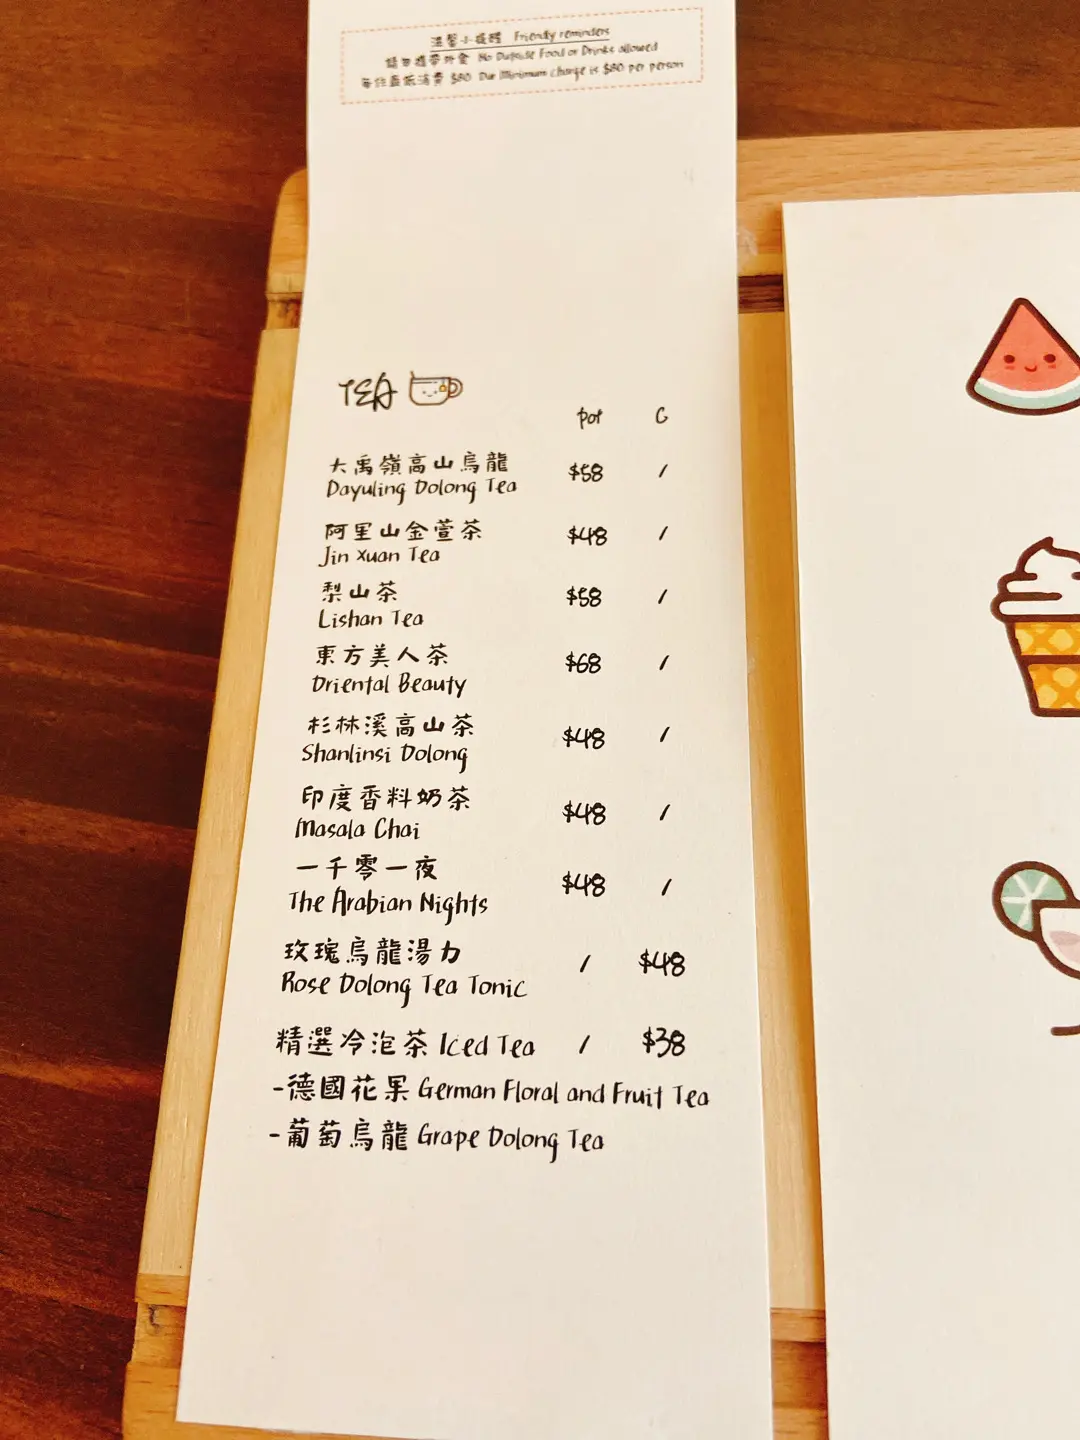 溫馨小提醒 Friendly reminders
請勿攜帶外食 No Outside Food or Drinks allowed
每位最低消費 $80 Our Minimum charge is $80 per person
TEA
pot C
大禹嶺高山烏龍 $58 /
Dayuling Oolong Tea
阿里山金萱茶 $48 /
Jin Xuan Tea
梨山茶 $58 /
Lishan Tea
東方美人茶 $68 /
Oriental Beauty
杉林溪高山茶 $48 /
Shanlinsi Oolong
印度香料奶茶 $48 /
Masala Chai
一千零一夜 $48 /
The Arabian Nights
玫瑰烏龍湯力 / $48
Rose Oolong Tea Tonic
精選冷泡茶 Iced Tea / $38
-德國花果 German Floral and Fruit Tea
-葡萄烏龍 Grape Oolong Tea